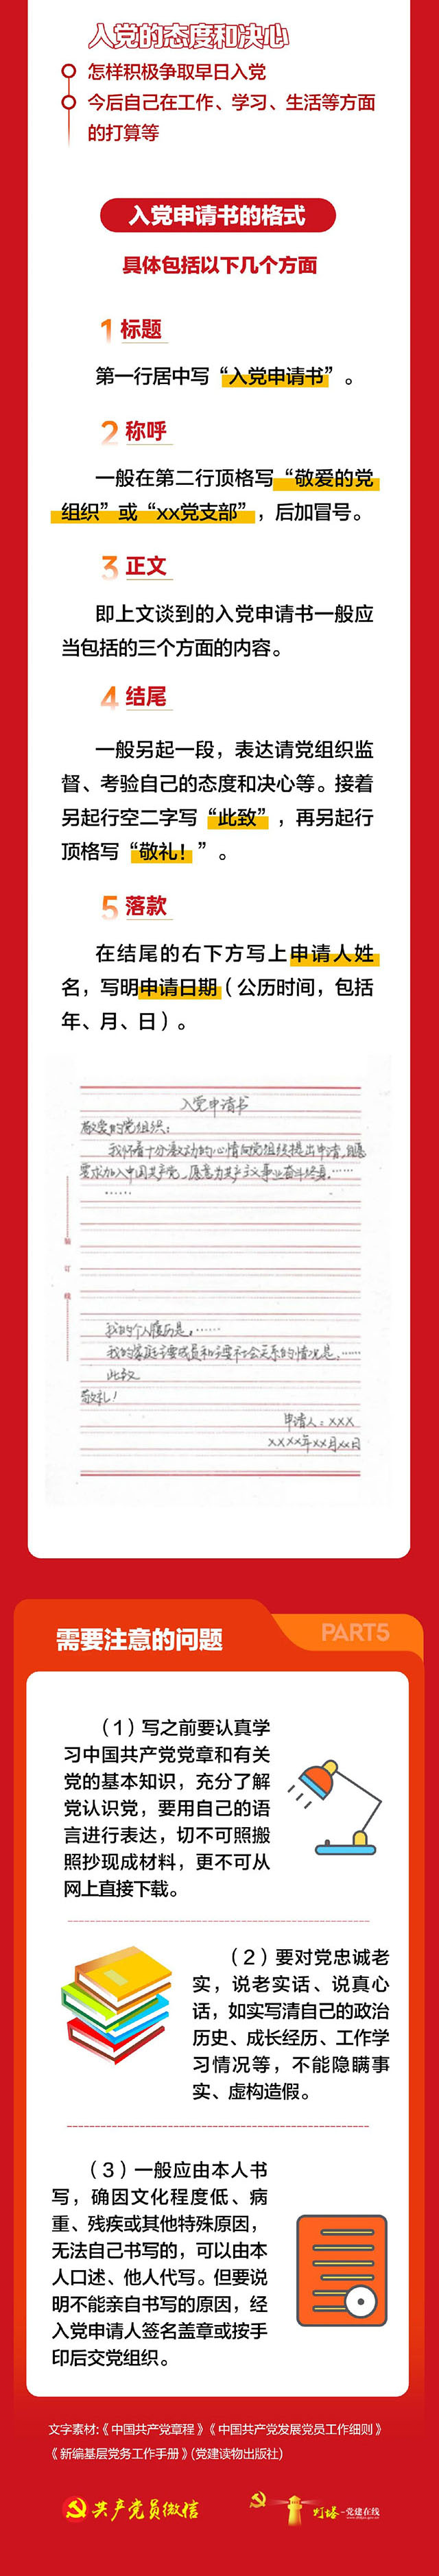 入党的态度和决心
怎样积极争取早日入党
今后自己在工作、学习、生活等方面
的打算等
入党申请书的格式
具体包括以下几个方面
1 标题
第一行居中写“入党申请书”。
2 称呼
一般在第二行顶格写“敬爱的党
组织”或“xx党支部”，后加冒号。
3 正文
即上文谈到的入党申请书一般应
当包括的三个方面的内容。
4 结尾
一般另起一段，表达请党组织监
督、考验自己的态度和决心等。接着
另起行空二字写“此致”，再另起行
顶格写“敬礼！”。
5 落款
在结尾的右下方写上申请人姓
名，写明申请日期（公历时间，包括
年、月、日）。
入党申请书
敬爱的党组织：
我怀着十分激动的心情向党组织提出申请，自愿
要求加入中国共产党，愿意为共产主义事业奋斗终身。……
……
装
订
线
我的个人履历是：……
我的家庭主要成员和主要社会关系的情况是：……
此致
敬礼！
申请人：×××
××××年××月××日
需要注意的问题
PART5
（1）写之前要认真学
习中国共产党党章和有关
党的基本知识，充分了解
党认识党，要用自己的语
言进行表达，切不可照搬
照抄现成材料，更不可从
网上直接下载。
（2）要对党忠诚老
实，说老实话、说真心
话，如实写清自己的政治
历史、成长经历、工作学
习情况等，不能隐瞒事
实、虚构造假。
（3）一般应由本人书
写，确因文化程度低、病
重、残疾或其他特殊原因，
无法自己书写的，可以由本
人口述、他人代写。但要说
明不能亲自书写的原因，经
入党申请人签名盖章或按手
印后交党组织。
文字素材:《中国共产党章程》《中国共产党发展党员工作细则》
《新编基层党务工作手册》(党建读物出版社)
共产党员微信
灯塔-党建在线